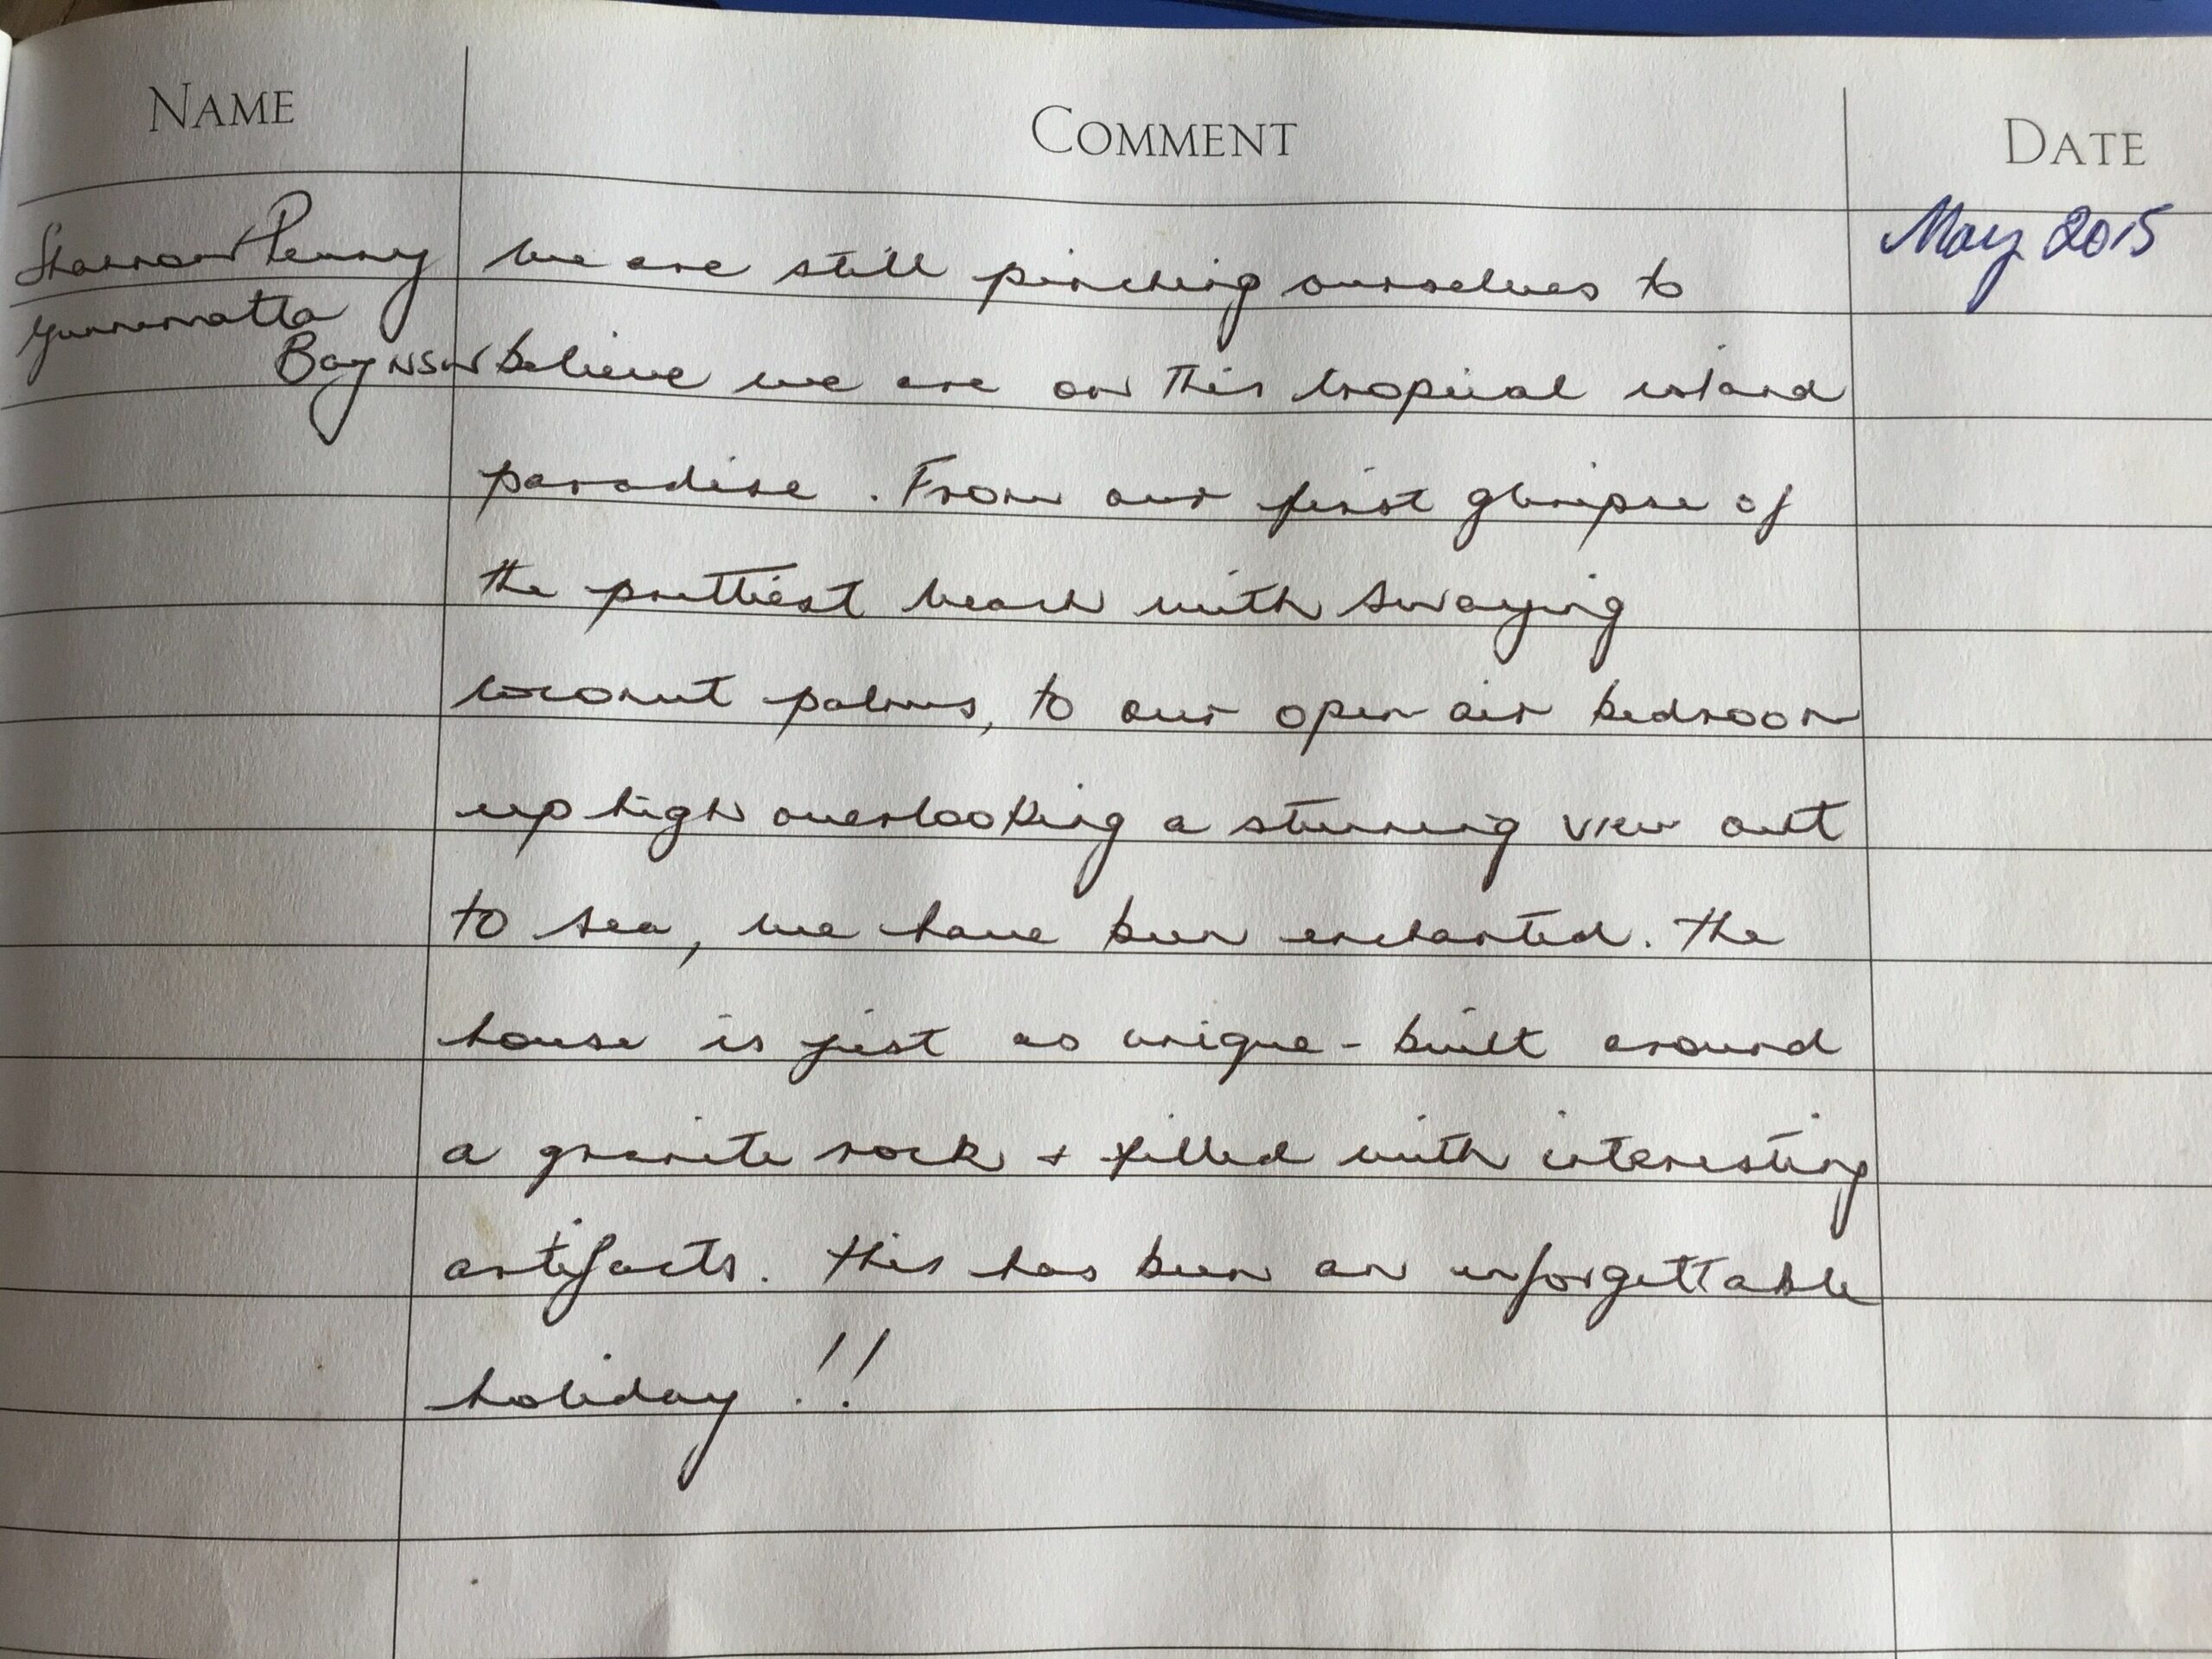 NAME COMMENT DATE
Sharron Penny
Gunnamatta
Bay NSW
May 2015
We are still pinching ourselves to
believe we are on this tropical island
paradise. From our first glimpse of
the prettiest beach with swaying
coconut palms, to our open air bedroom
up high overlooking a stunning view out
to sea, we have been enchanted. The
house is just as unique - built around
a granite rock + filled with interesting
artifacts. This has been an unforgettable
holiday!!